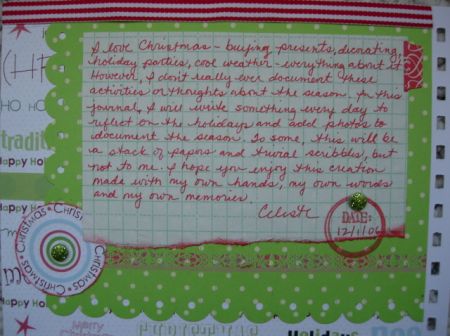 I love Christmas - buying presents, decorating,
holiday parties, cool weather - everything about it
However, I don't really ever document these
activities or thoughts about the season. In this
journal, I will write something every day to
reflect on the holidays and add photos to
document the season. To some, this will be
a stack of papers and trivial scribbles, but
not to me. I hope you enjoy this creation
made with my own hands, my own words
and my own memories.
Celeste
DATE:
12/1/06
(H
HO HO
traditi
Happy Ho
Happy Holi
Christmas Christmas Christmas
merry
Holidays